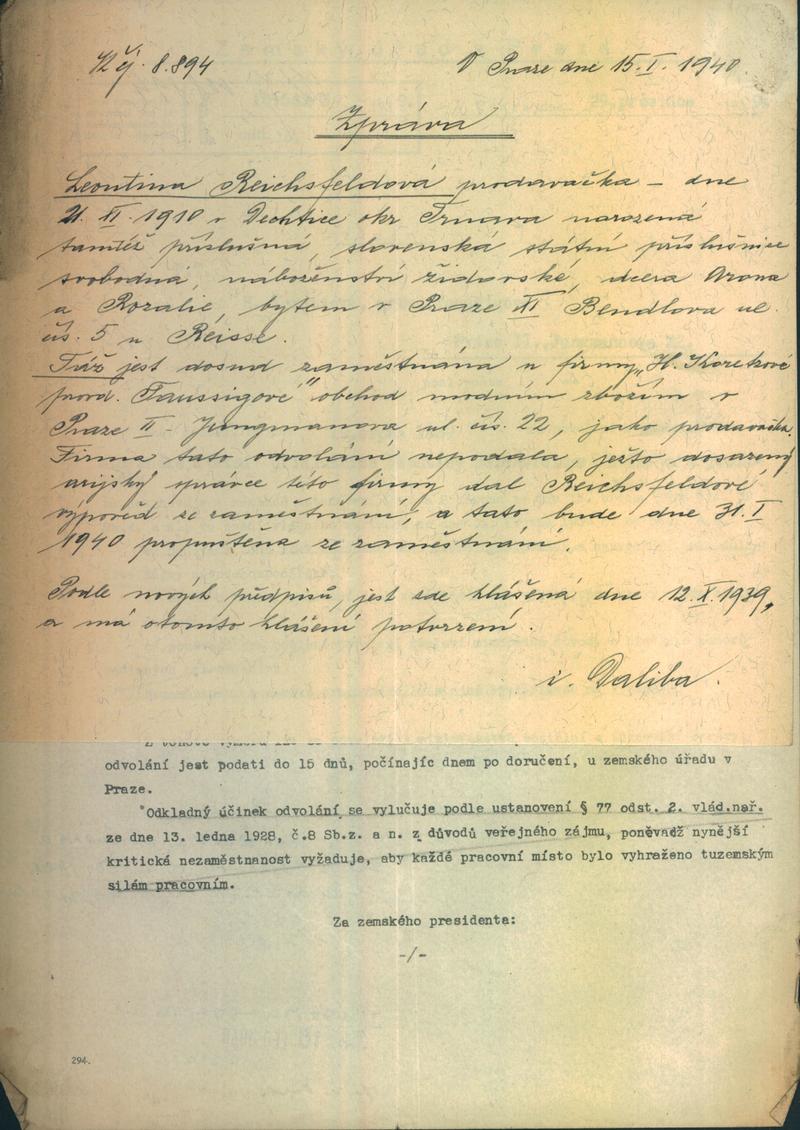 K čj. 8.894 V Praze dne 15.I.1940.
Zpráva
Leontina Reichsfeldová prodavačka – dne
21. VI. 1910 v Dechtice okr. Trnava narozená
tamtéž příslušná, slovenská státní příslušnice
svobodná, náboženství židovské, dcera Arona
a Rozalie, bytem v Praze XI Bendlova ul.
čís. 5 u Reisse.
Táž jest dosud zaměstnána u firmy „H. Koretkové
prod. Taussigové" obchod modním zbožím v
Praze II – Jungmanova ul. čís. 22, jako prodavačka.
Firma tato odvolání nepodala, ježto dosazený
arijský správce této firmy dal Reichsfeldové
výpověď ze zaměstnání, a tato bude dne 31. I
1940 propuštěna ze zaměstnání.
Podle nových předpisů, jest zde hlášená dne 12.X.1939,
a má otomto hlášení potvrzení.
i. Daliba.
odvolání jest podati do 15 dnů, počínajíc dnem po doručení, u zemského úřadu v
Praze.
Odkladný účinek odvolání se vylučuje podle ustanovení § 77 odst. 2. vlád.nař.
ze dne 13. ledna 1928, č.8 Sb.z. a n. z důvodů veřejného zájmu, poněvadž nynější
kritická nezaměstnanost vyžaduje, aby každé pracovní místo bylo vyhraženo tuzemským
silám pracovním.
Za zemského presidenta:
-/-
294.